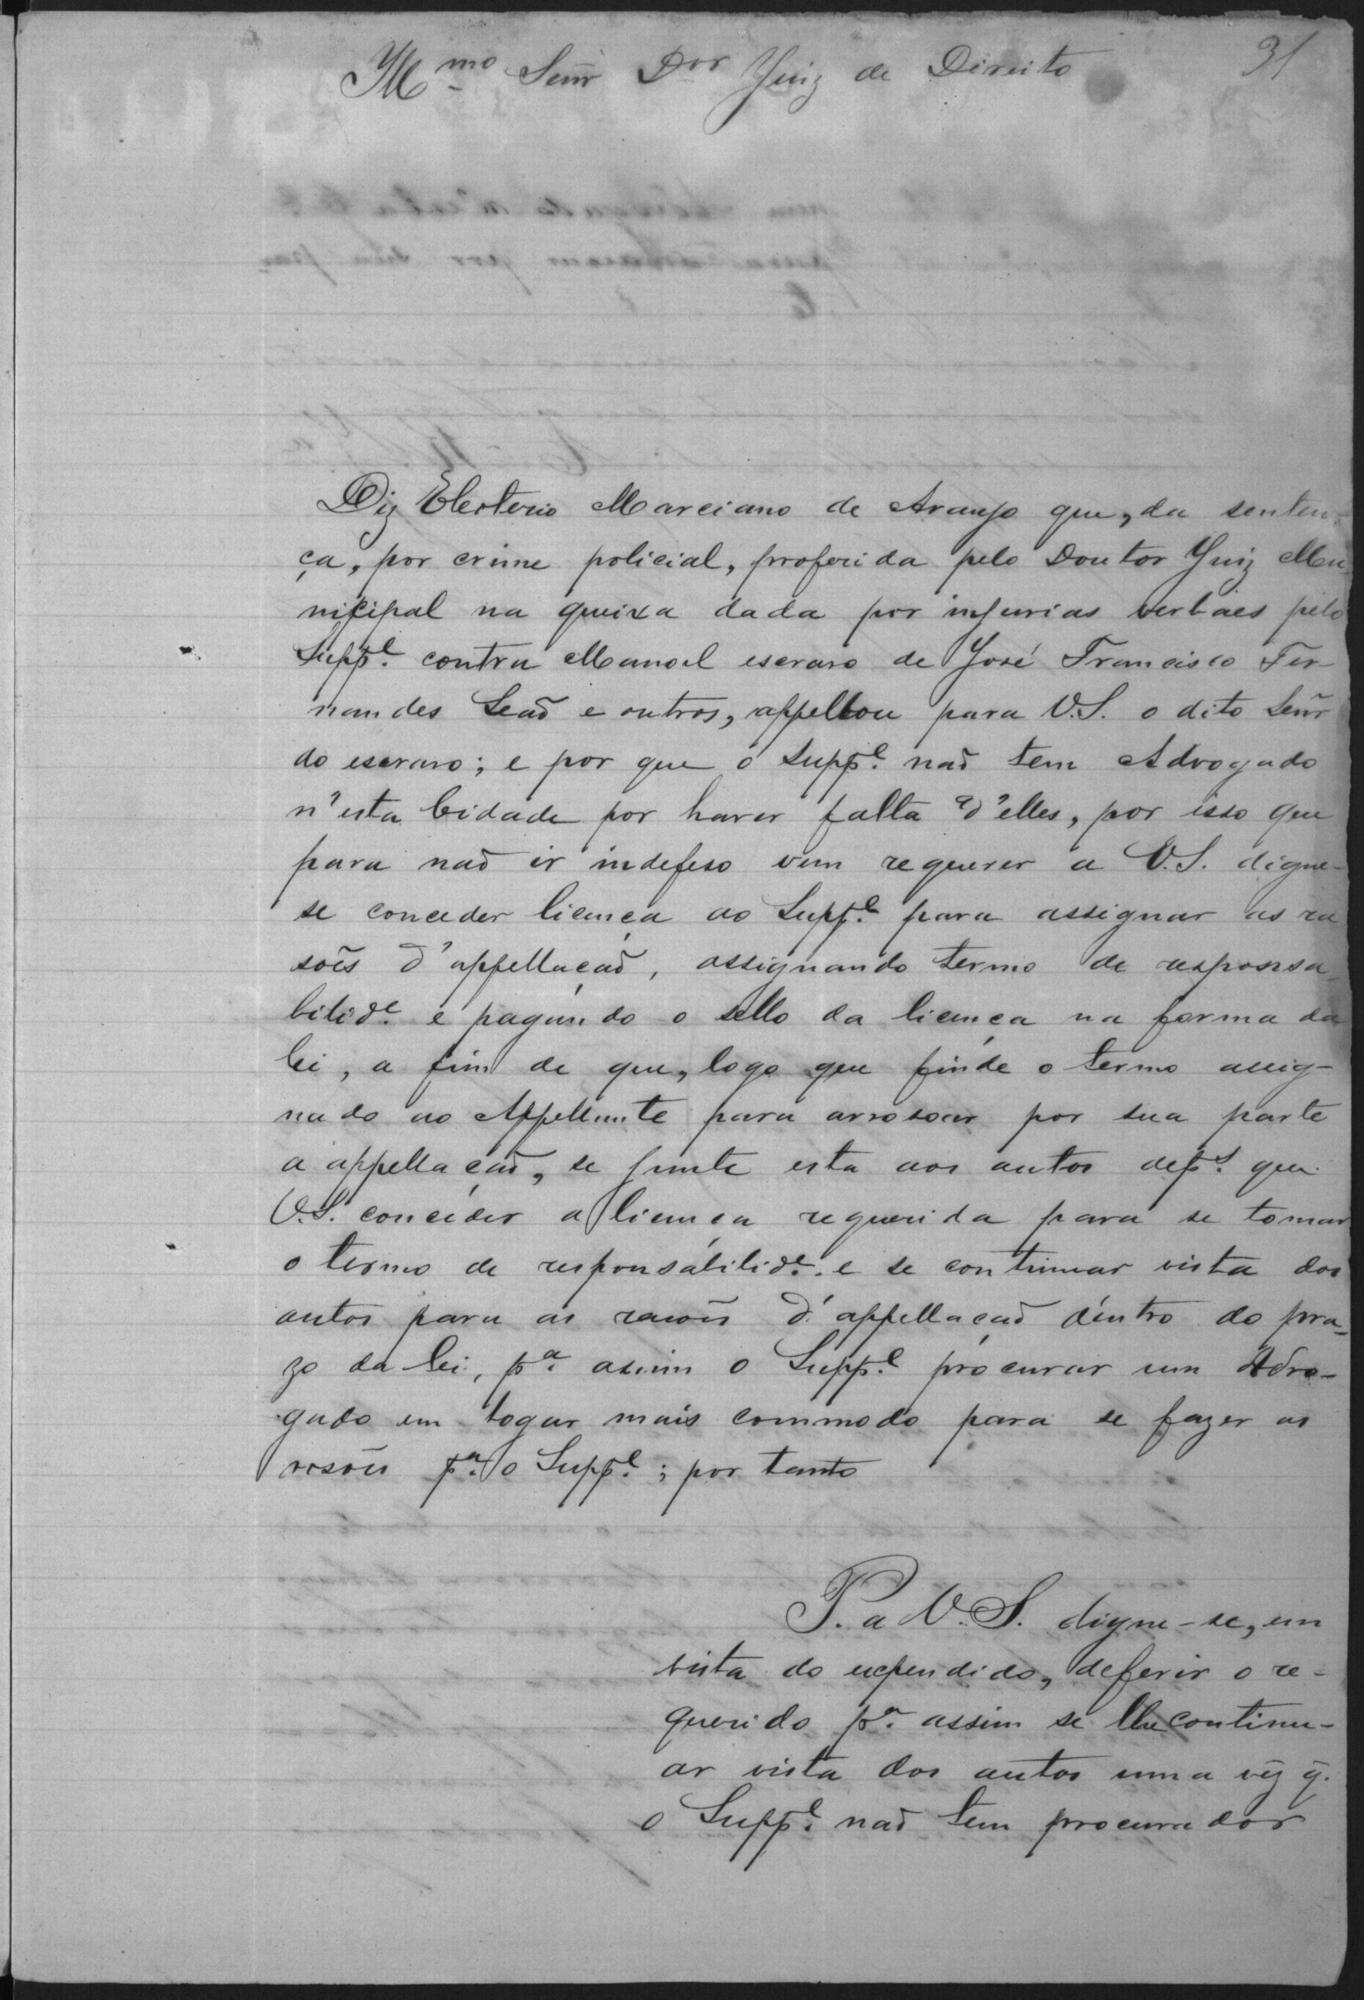 Illmo Senr Dor Juiz de Direito
31
Diz Elesterio Marciano de Araujo que, da senten-
ça, por crime policial, proferida pelo Doutor Juiz Mu-
nicipal na queixa dada por injurias verbaes pelo
Suppe. contra Manoel escravo de José Francisco Fer-
nandes Leaõ e outros, appellou para V.S. o dito Senr
do escravo; e por que o Suppe. naõ tem Advogado
n'esta Cidade por haver falta d'elles, por isso que
para naõ ir indefeso vem requerer a V.S. digne-
se conceder licença ao Suppe. para assignar as ra
soẽs d'appellaçaõ, assignando termo de responsa-
bilide. e pagando o sello da licença na forma da
lei, a fim de que, logo que finde o termo assig-
nado ao Appellante para arrosoar por sua parte
a appellaçaõ, se junte esta aos autos deps. que
V.S. conceder a licença requerida para se tomar
o termo de responsabilide. e se continuar vista dos
autos para as rasoẽs d'appellaçaõ dentro do pra-
zo da lei, pa. assim o Suppe. procurar um Advo-
gado em logar mais commodo para se fazer as
resoẽs pa. o Suppe.; por tanto
P. a V.S. digne-se, em
vista do expendido, deferir o re-
querido pa. assim se lhe continu-
ar vista dos autos uma vez q̃.
o Suppe. naõ tem procurador